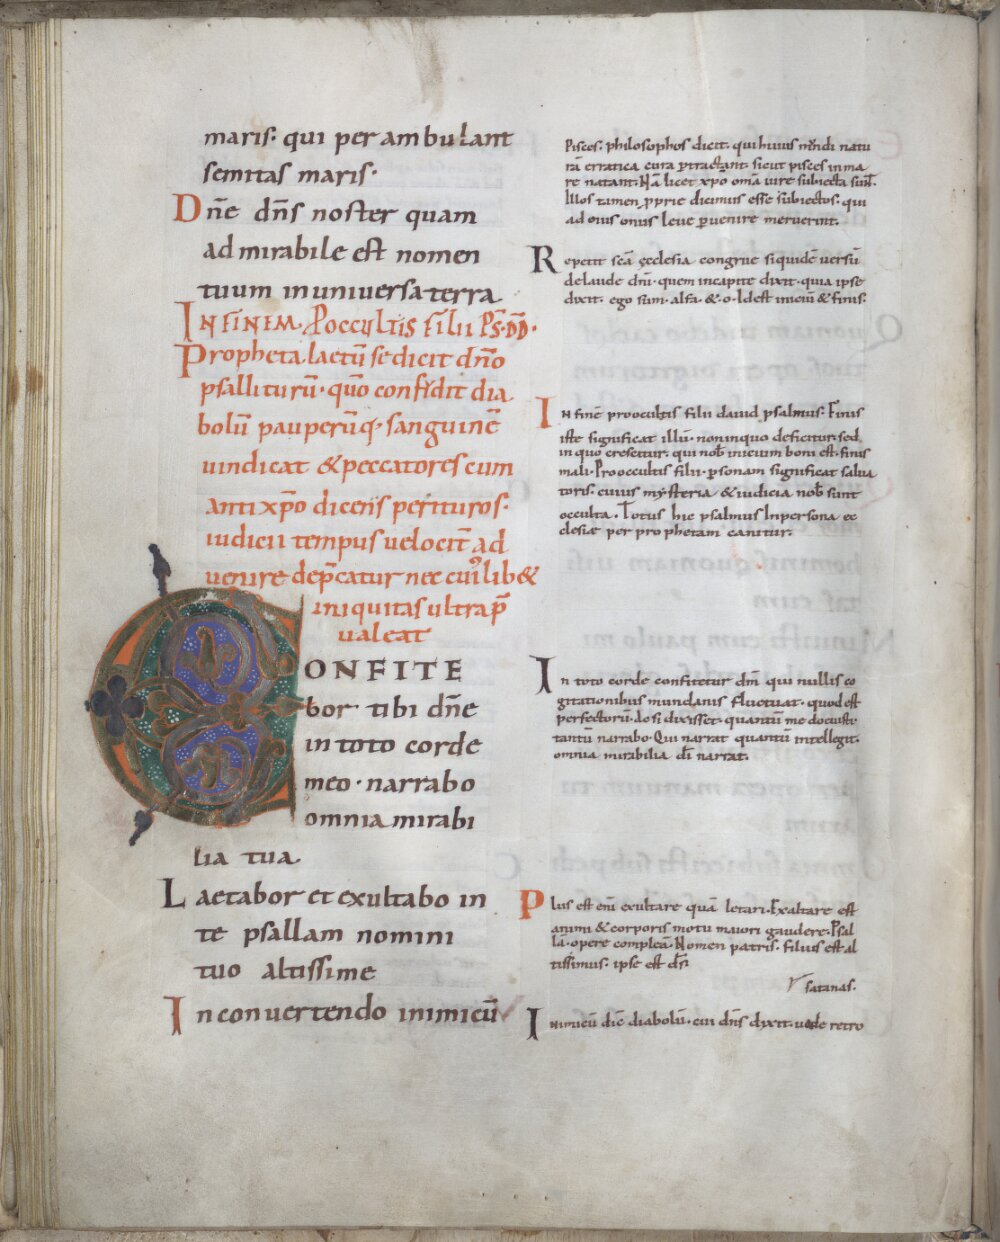 maris· qui per ambulant
semitas maris·
Dn̄e dn̄s noster quam
admirabile est nomen
tuum in universa terra
IN FINEM P̱ OCCULTIS FILII PS̄ DD̄·
Propheta laetū se dicit dn̄o
psalliturū· quo confidit dia
bolū pauperūq· sanguinē
uindicat & peccatores cum
anti xp̄o dicens perituros·
iudicii tempus uelocit̄ ad
uenire dep̄catur nec cuiꝰlib&
iniquitas ultra p̄
ualeat
CONFITE
bor tibi dn̄e
in toto corde
meo· narrabo
omnia mirabi
lia tua
Laetabor et exultabo in
te psallam nomini
tuo altissime
In convertendo inimicū
Pisces· philosophos dicit· qui huius mūdi natu
rā erratica cura ꝑtractant· sicut pisces in ma
re natant· Nā licet xp̄o om̄a iure subiecta sint·
Illos tamen ꝓprie dicimus esse subiectos· qui
ad eius onus leue ꝑuenire meruerint·
Repetit sc̄a ęcclesia congrue siquidē uersū
de laude dn̄i· quem in capite dixit· quia ipse
dixit· ego sum· alfa· & ·o· Id est iniciū & finis·
In finē pro occultis filii dauid psalmus· Finis
iste significat illū· non in quo deficitur· sed
in quo crescitur· qui nob̄ inicium boni est· finis
mali· Pro occultis filii· ꝑsonam significat salua
toris· cuius mysteria & iudicia nob̄ sunt
occulta· Totus hic psalmus In persona ec
clesiae per prophetam canitur·
In toto corde confitetur dn̄m qui nullis co
gitationibus mundanis fluctuat· quod est
perfectorū· Ac si dixisset· quantū me docuisti
tantū narrabo· Qui narrat quantū intellegit·
omnia mirabilia dī narrat·
Plus est enī exultare quā letari· Exultare est
animi & corporis motu maiori gaudere· Psal
la· opere compleā· Nomen patris· filius est al
tissimus· ipse est ds̄
satanas·
Inimicū dic̄ diabolū· cui dn̄s dixit· uade retro